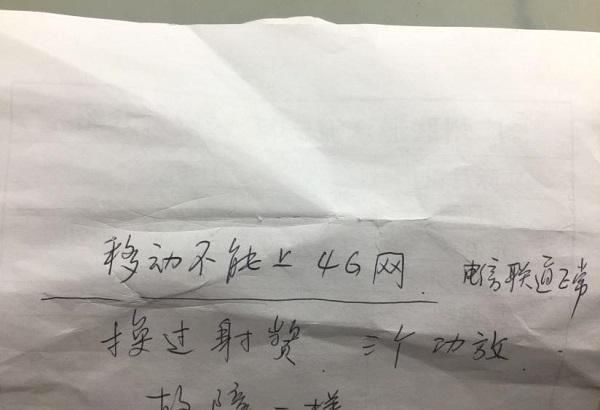 移动不能上4G网. 电信联通正常
换过射频. 三个功放.
故障一样